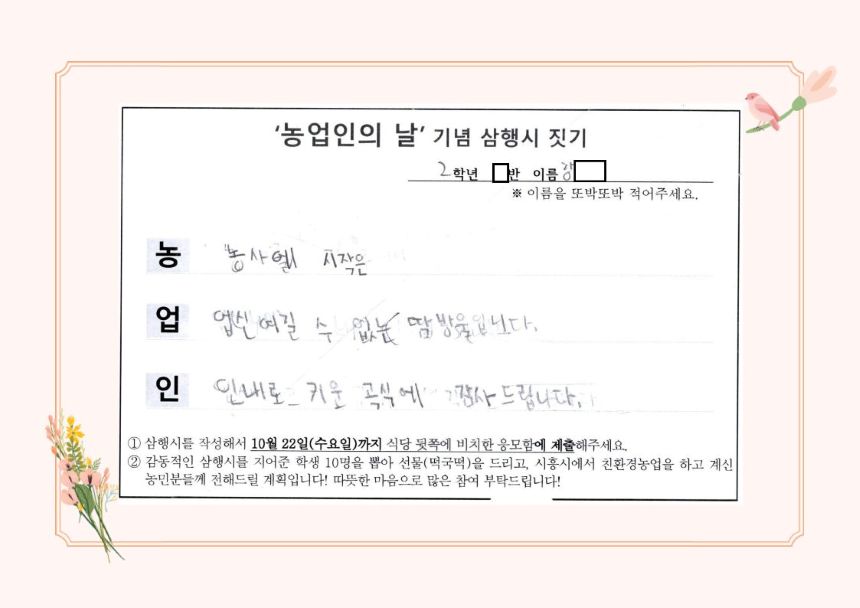 '농업인의 날' 기념 삼행시 짓기
2학년 반 이름
※ 이름을 또박또박 적어주세요.
농 농사의 시작은
업 업신여길 수 없는 땀방울입니다.
인 인내로 키운 곡식에 감사드립니다.
① 삼행시를 작성해서 10월 22일(수요일)까지 식당 뒷쪽에 비치한 응모함에 제출해주세요.
② 감동적인 삼행시를 지어준 학생 10명을 뽑아 선물(떡국떡)을 드리고, 시흥시에서 친환경농업을 하고 계신
농민분들께 전해드릴 계획입니다! 따뜻한 마음으로 많은 참여 부탁드립니다!